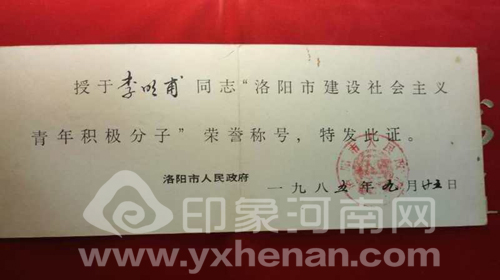 授于李明甫同志“洛阳市建设社会主义
青年积极分子”荣誉称号，特发此证。
洛阳市人民政府
一九八五年九月廿五日
印象河南网
www.yxhenan.com